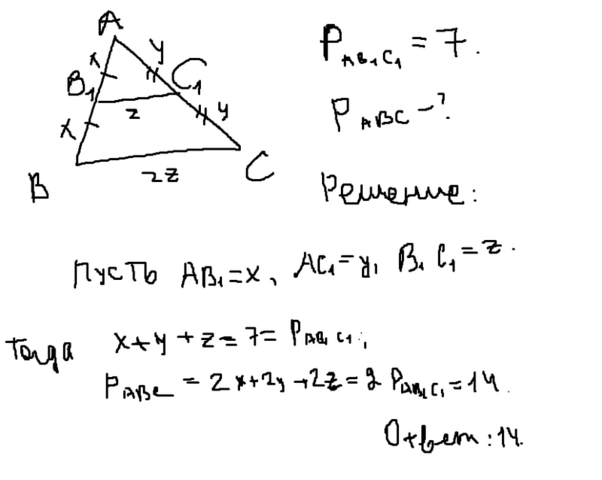 A
x
y
B₁
C₁
z
x
y
B
2z
C
P_AB₁C₁ = 7.
P_ABC – ?
Решение:
Пусть AB₁=x, AC₁=y, B₁C₁=z.
Тогда x+y+z=7=P_AB₁C₁,
P_ABC = 2x+2y+2z=2P_AB₁C₁=14.
Ответ: 14.